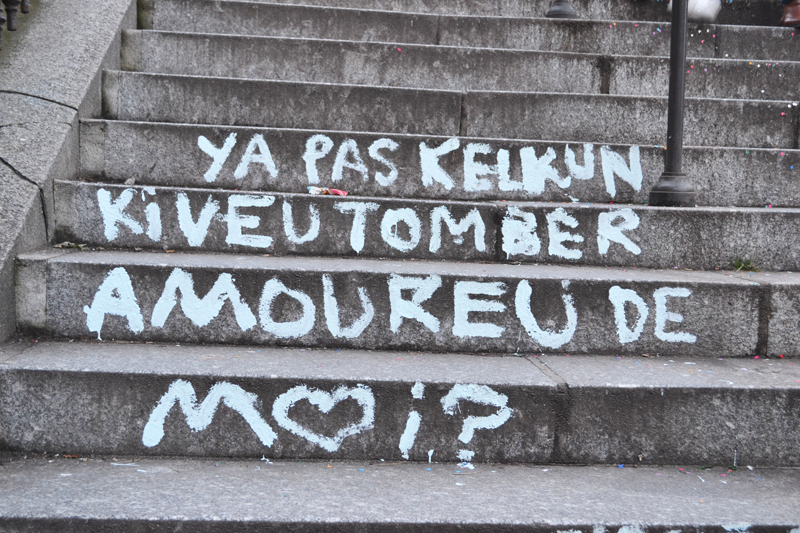 YA PAS KELKUN
KIVEU TOMBER
AMOUREU DE
M♡i?